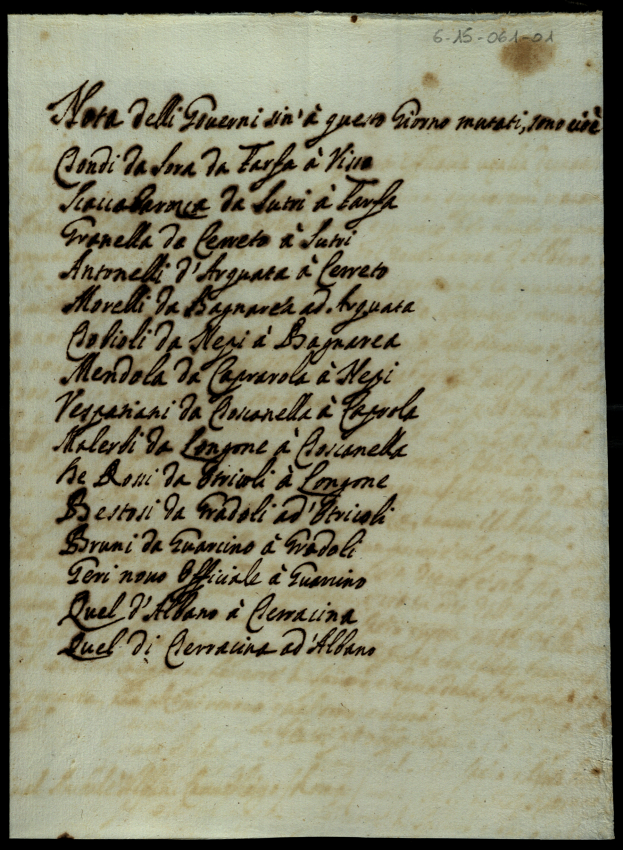 6-15-061-01
Nota delli Governi sin' à questo Giorno mutati, sono cioè
Tondi da Sora da Farfa à Visso
da Sutri à Farfa
Granella da Cerreto à Sutri
Antonelli d'Arquata à Cerreto
Morelli da Bagnarea ad Arquata
da Nepi à Bagnarea
Mendola da Caprarola à Nepi
Vespasiani da Toscanella à Caprola
Malerbi da Longone à Toscanella
De Rossi da Otricoli à Longone
da Gradoli ad' Otricoli
Bruni da Guarcino à Gradoli
Geri novo Officiale à Guarcino
Quel d'Albano à Terracina
Quel di Terracina ad' Albano